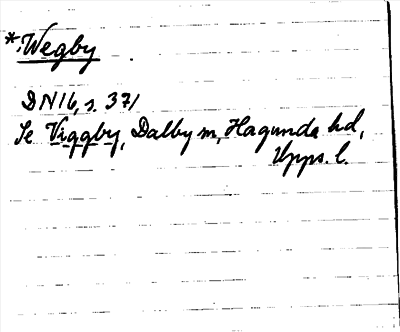 *Wegby
DN16, s. 371
Se Viggby, Dalby sn, Hagunda hd,
Upps. l.